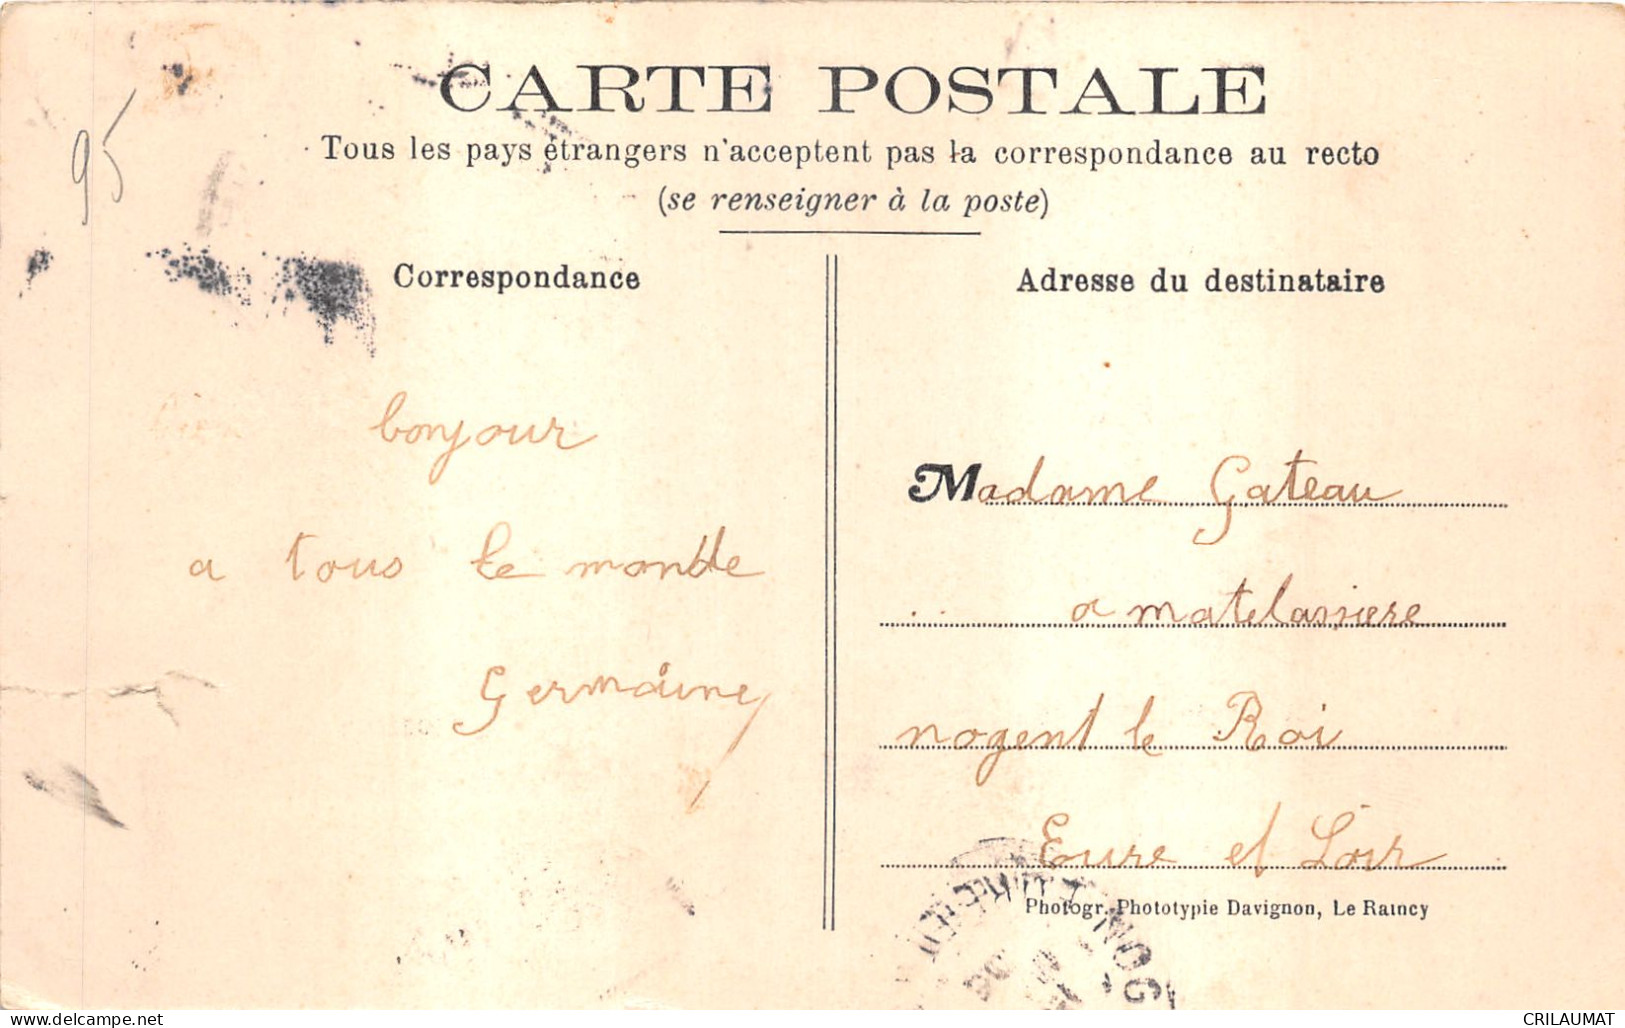 95
CARTE POSTALE
Tous les pays étrangers n'acceptent pas la correspondance au recto
(se renseigner à la poste)
Correspondance
bonjour
a tous le monde
Germaine
Adresse du destinataire
Madame Gateau
a matelassiere
nogent le Roi
Eure et Loir
Photogr. Phototypie Davignon, Le Raincy
NOG
www.delcampe.net
CRILAUMAT